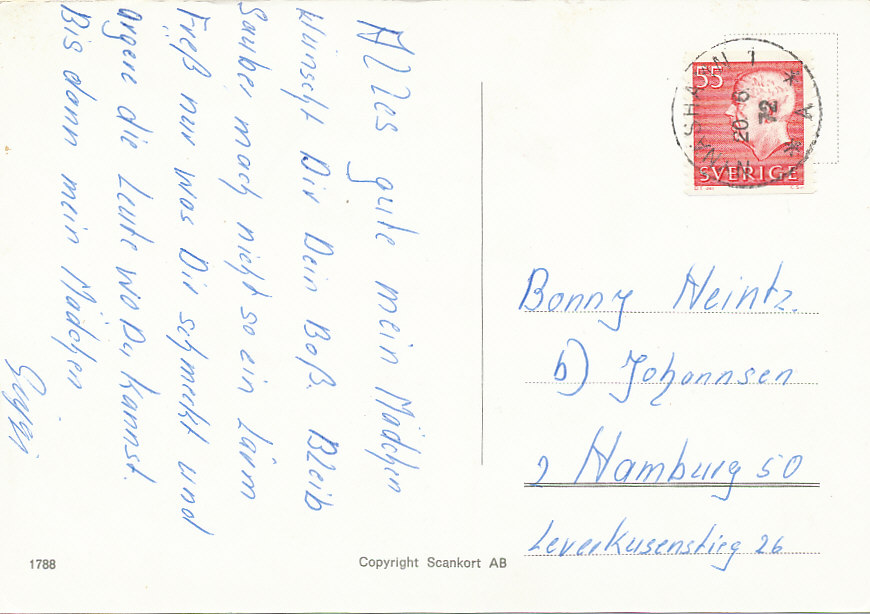 Alles gute mein Mädchen
wünscht Dir Dein Boß. Bleib
Sauber mach nicht so ein Lärm
Freß nur was Dir schmeckt und
ärgere die Leute wo Du kannst.
Bis dann mein Mädchen
55
SVERIGE
20 6
72
Bonny Heintz.
b) Johannsen
2 Hamburg 50
Leverkusenstieg 26
1788
Copyright Scankort AB